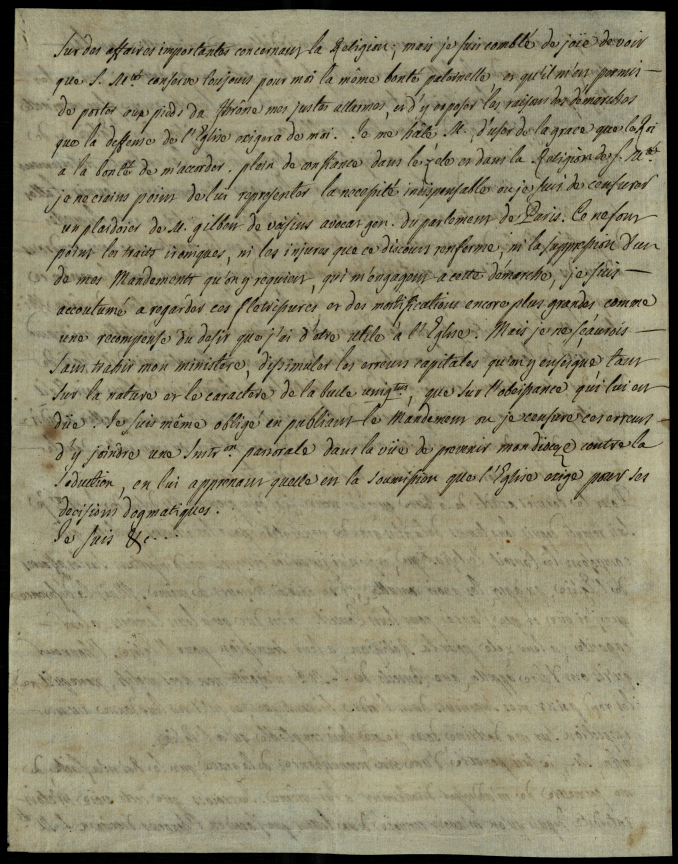 sur des affaires importantes concernant la Religion; mais je suis comblé de joïe de voir
que S. M.té conserve toujours pour moi la même bonté paternelle et qu'il m'est permis
de porter aux pieds du Thrône mes justes allarmes, et d'y exposer les raisons des démarches
que la deffense de l'Eglise exigera de moi. Je me hâte M., d'user de la grace que le Roi
a la bonté de m'accorder. plein de confiance dans le zéle et dans la Religion de S. M.té
je ne crains point de lui representer la necessité indispensable ou je suis de censurer
un plaidoïé de M. gilbert de voisins avocat gen. du parlement de Paris. Ce ne sont
point les traits ironiques, ni les injures que ce discours renferme, ni la suppression d'un
de mes Mandements qu'on y requiert, qui m'engagent a cette démarche, je suis
accoutumé a regarder ces fletrissures et des mortifications encore plus grandes comme
une recompense du desir que j'ai d'etre utile à l'Eglise. Mais je ne sçaurois
sans trahir mon ministère, dissimuler les erreurs capitales qu'on y enseigne tant
sur la nature et le caractere de la bulle unig.tus, que sur l'obéissance qui lui est
düe. Je suis même obligé en publiant le Mandement ou je censure ces erreurs
d'y joindre une Instr.on pastorale dans la vüe de prevenir mon diocèze contre la
Seduction, en lui apprenant quelle est la soumission que l'Eglise exige pour ses
decisions dogmatiques.
Je suis &c...